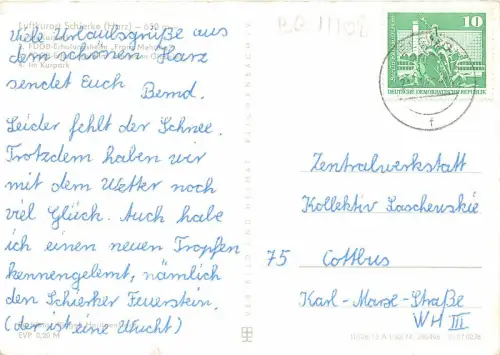 Luftkurort Schierke (Harz) – 650 m
4. Im Kurpark
Viele Urlaubsgrüße aus
dem schönen Harz
sendet Euch
Bernd.
Leider fehlt der Schnee.
Trotzdem haben wir
mit dem Wetter noch
viel Glück. Auch habe
ich einen neuen Tropfen
kennengelernt, nämlich
den Schierker Feuerstein.
(der ist eine Wucht)
EVP: 0,20 M
VERLAG BILD UND HEIMAT REICHENBACH
10
DEUTSCHE DEMOKRATISCHE REPUBLIK
Zentralwerkstatt
Kollektiv Laschewskie
75 Cottbus
Karl-Marx-Straße
WH III